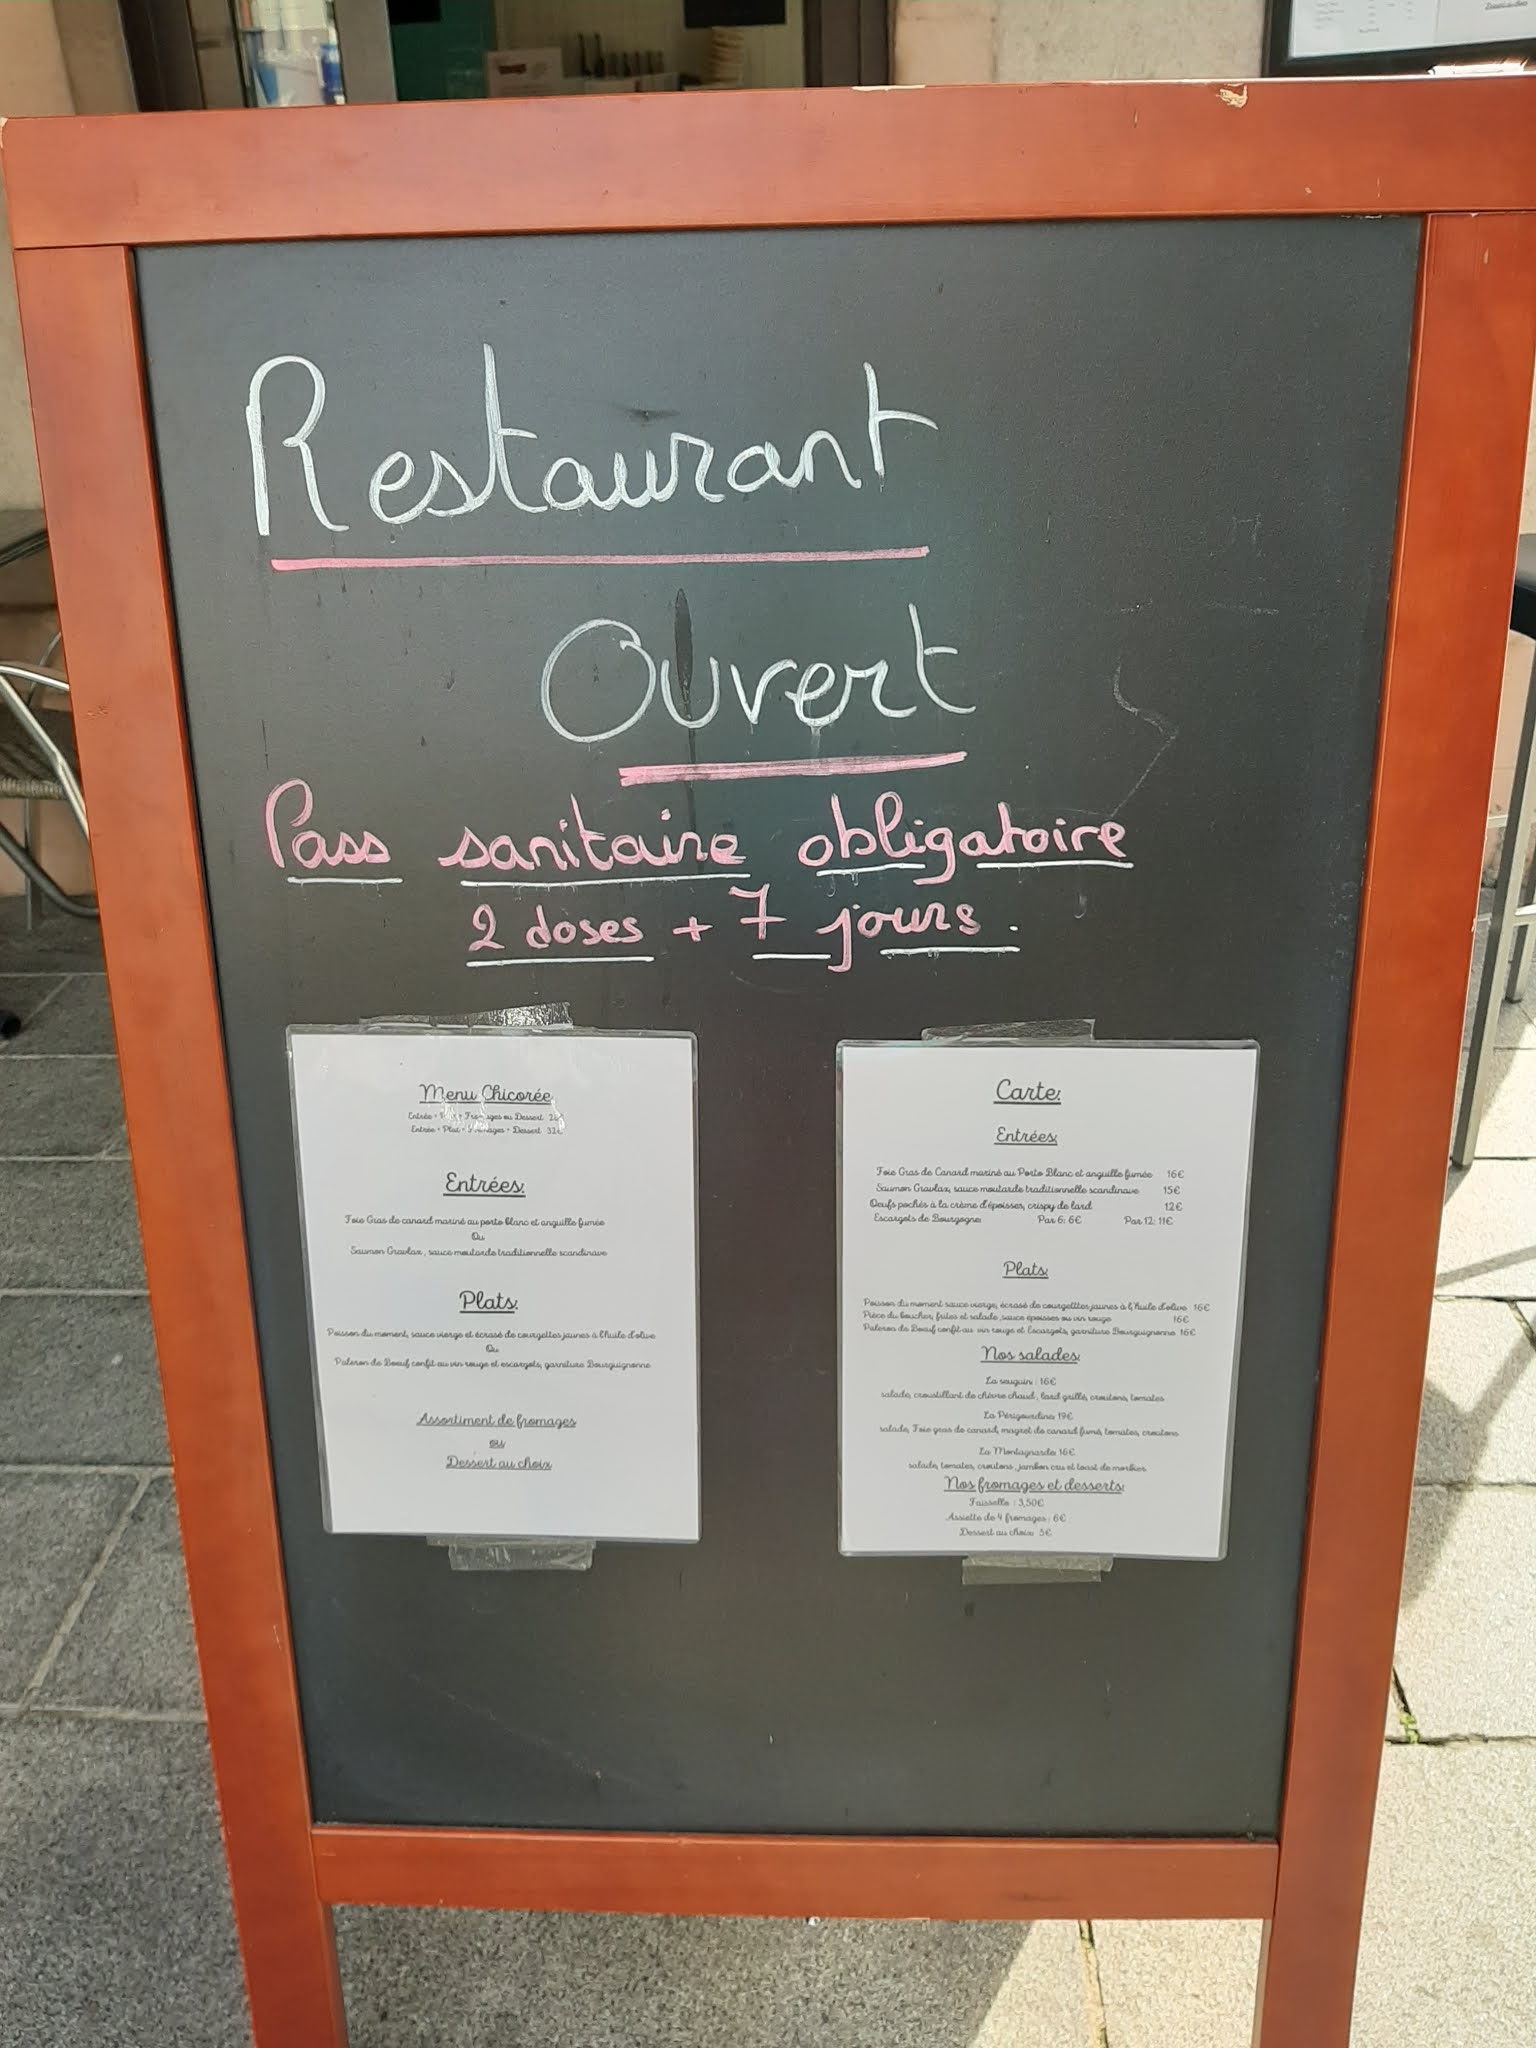 Restaurant
Ouvert
Pass sanitaire obligatoire
2 doses + 7 jours.
Menu Chicorée
Entrée + Plat + Fromages ou Dessert
Entrée + Plat + Fromages + Dessert 32€
Entrées:
Foie Gras de canard mariné au porto blanc et anguille fumée
Ou
Saumon Gravlax, sauce moutarde traditionnelle scandinave
Plats:
Poisson du moment, sauce vierge et écrasé de courgettes jaunes à l'huile d'olive
Ou
Paleron de Boeuf confit au vin rouge et escargots, garniture Bourguignonne
Assortiment de fromages
ou
Dessert au choix
Carte:
Entrées:
Foie Gras de Canard mariné au Porto Blanc et anguille fumée 16€
Saumon Gravlax, sauce moutarde traditionnelle scandinave 15€
Oeufs pochés à la crème d'époisses, crispy de lard 12€
Escargots de Bourgogne: Par 6: 6€ Par 12: 11€
Plats:
Poisson du moment sauce vierge, écrasé de courgetttes jaunes à l'huile d'olive 16€
Pièce du boucher, frites et salade ,sauce époisses ou vin rouge 16€
Paleron de Boeuf confit au vin rouge et Escargots, garniture Bourguignonne 16€
Nos salades:
La seuguin : 16€
salade, croustillant de chèvre chaud, lard grillé, croutons, tomates
La Périgourdine: 19€
salade, Foie gras de canard, magret de canard fumé, tomates, croutons
La Montagnarde: 16€
salade, tomates, croutons, jambon cru et toast de morbier
Nos fromages et desserts:
Faisselle : 3,50€
Assiette de 4 fromages : 6€
Dessert au choix: 5€